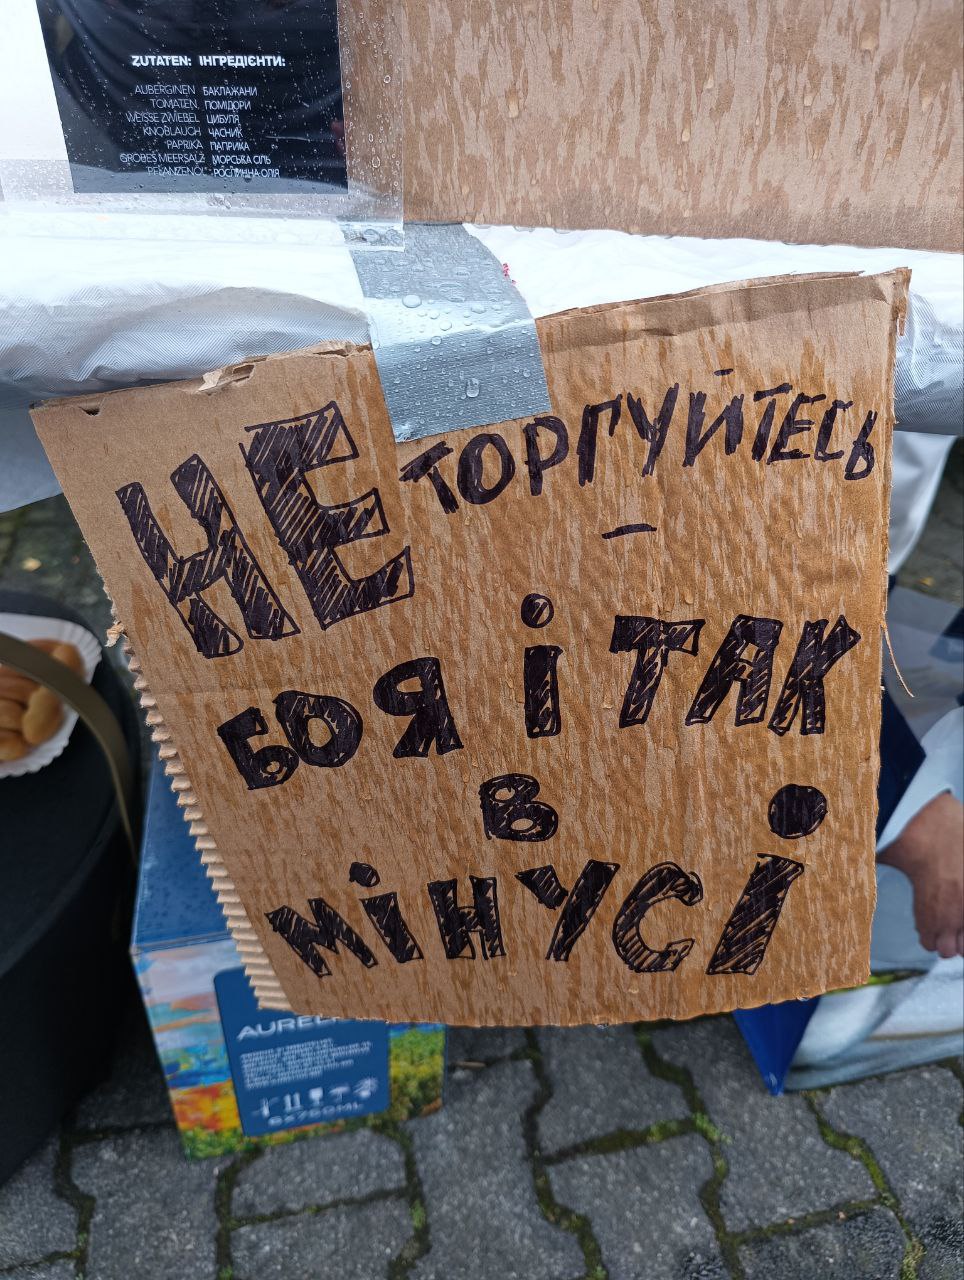 ZUTATEN: ІНГРЕДІЄНТИ:
AUBERGINEN БАКЛАЖАНИ
TOMATEN ПОМІДОРИ
WEISSE ZWIEBEL ЦИБУЛЯ
KNOBLAUCH ЧАСНИК
PAPRIKA ПАПРИКА
GROBES MEERSALZ МОРСЬКА СІЛЬ
PFLANZENÖL РОСЛИННА ОЛІЯ
НЕ ТОРГУЙТЕСЬ
–
БО Я І ТАК
В
МІНУСІ
6X750ML